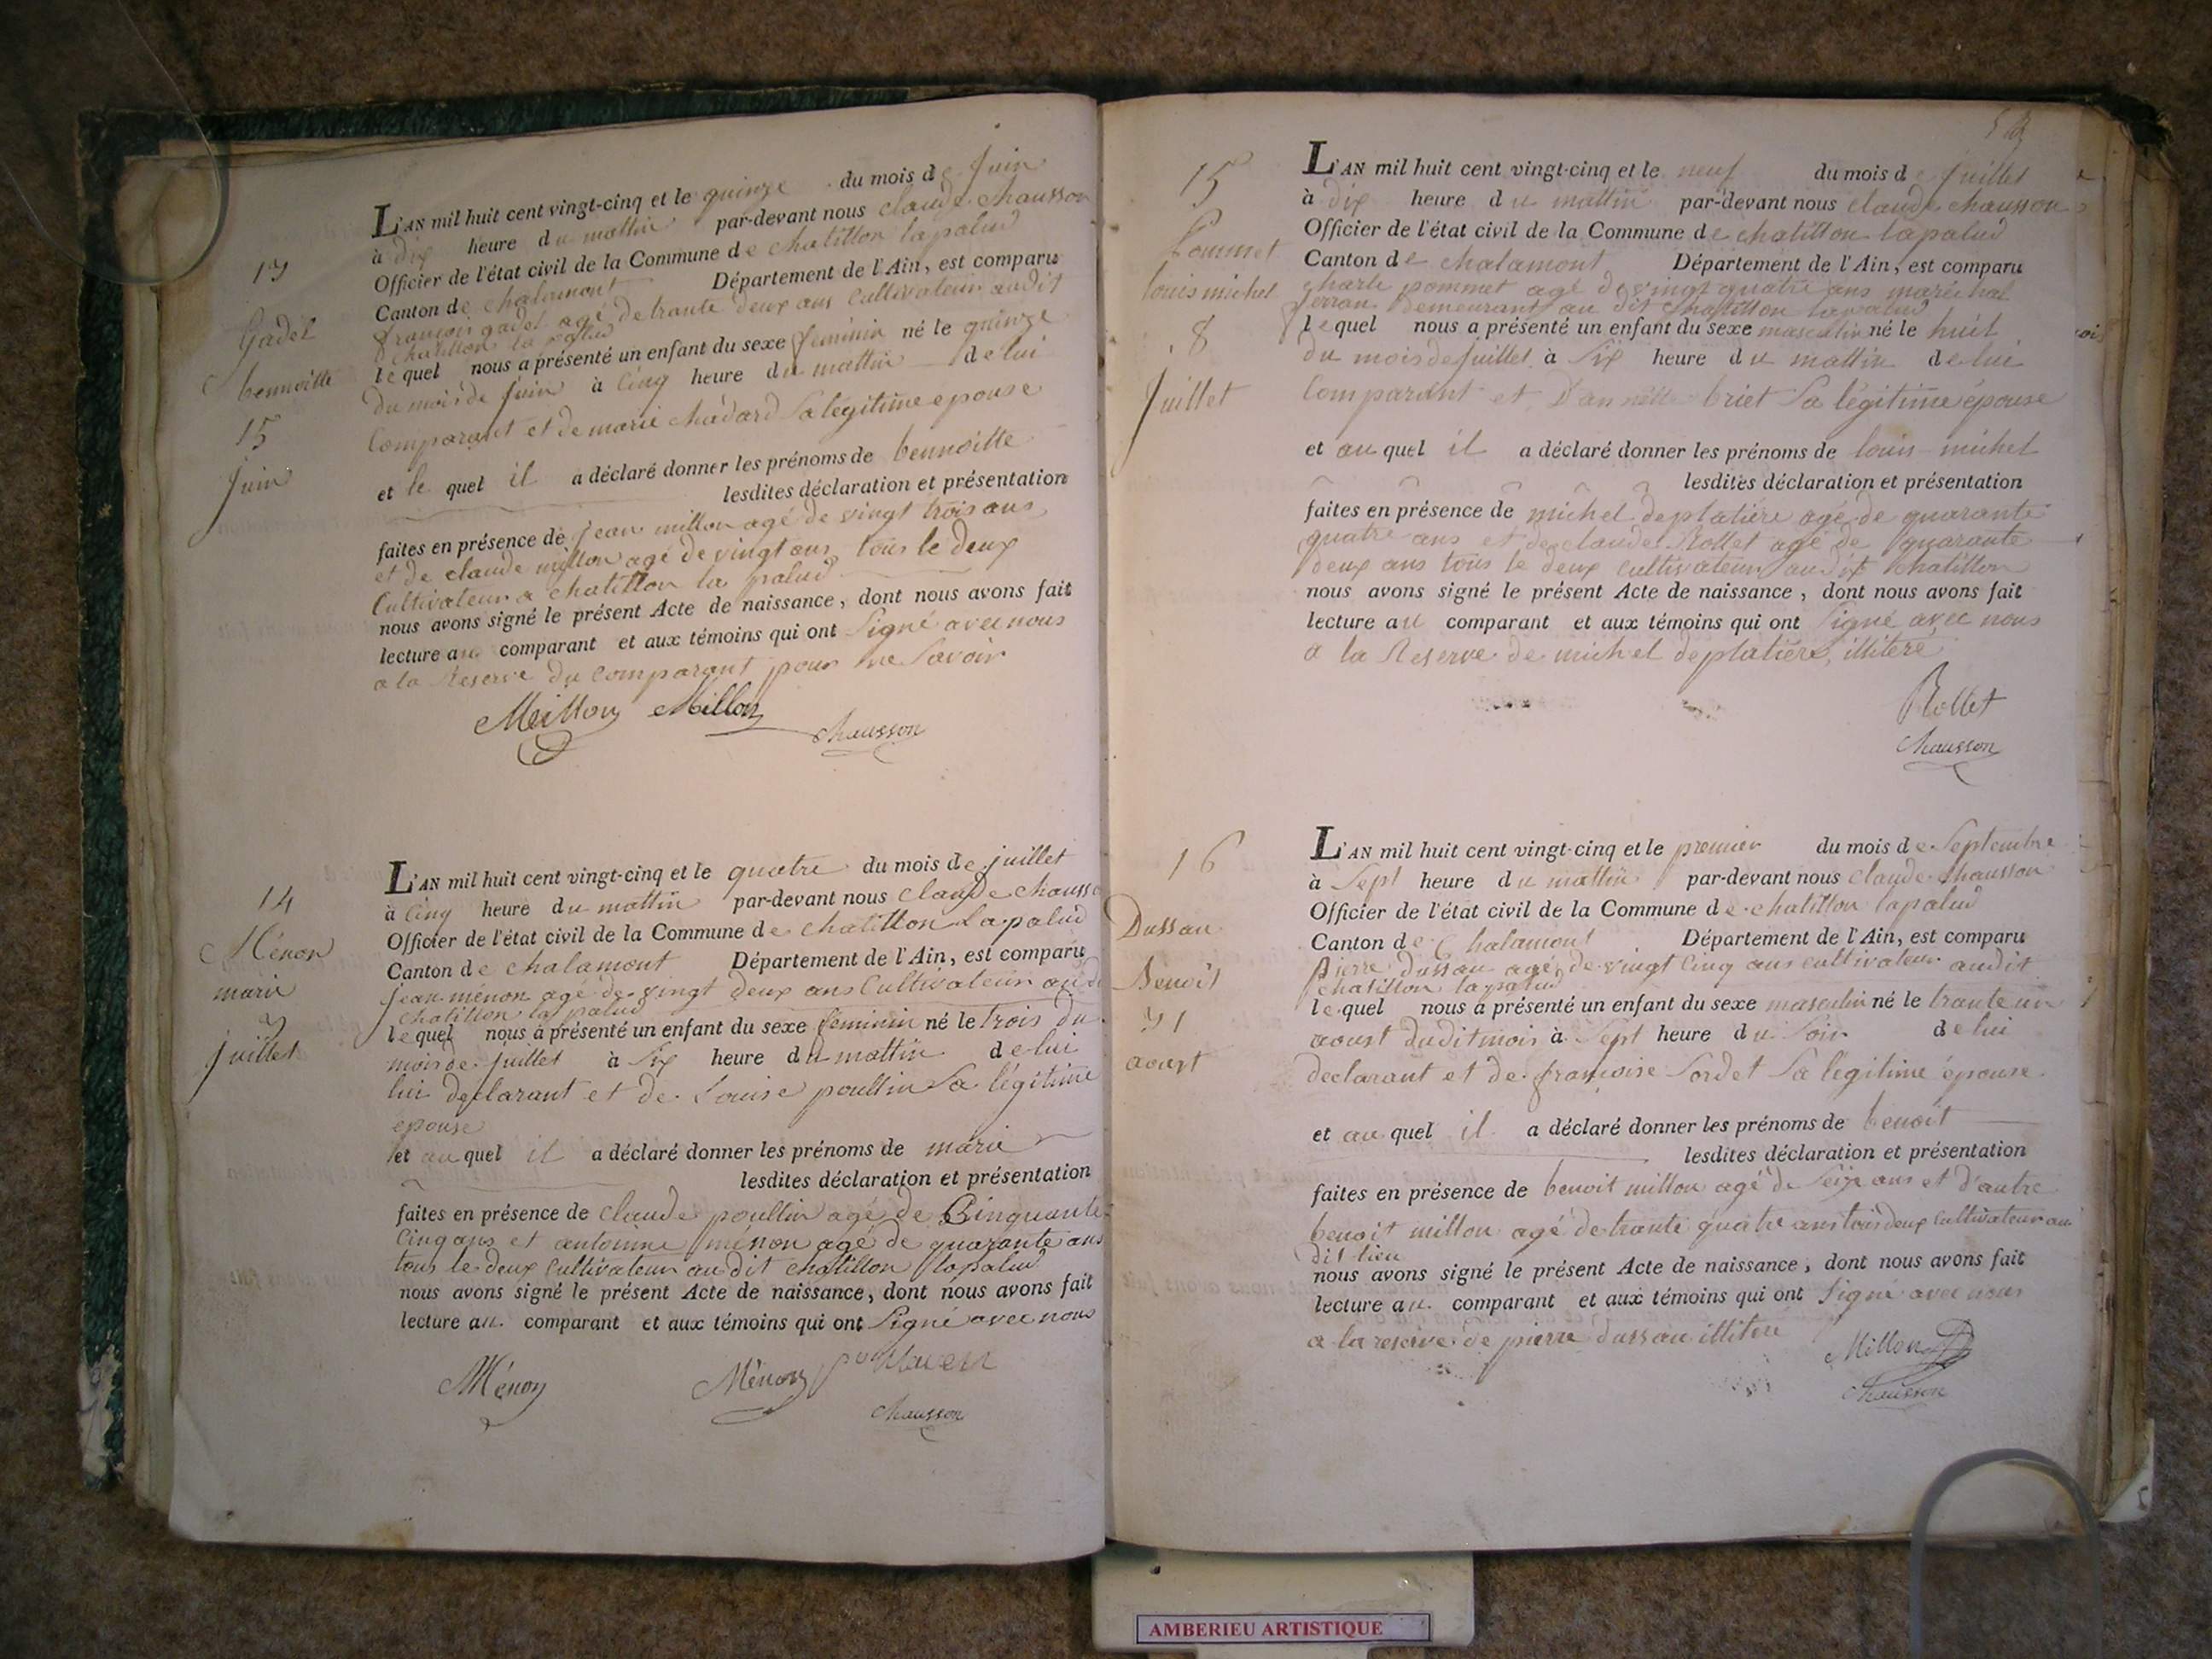 13
Gadel
bennoitte
15
Juin
L'AN mil huit cent vingt-cinq et le quinze du mois de Juin
à dix heure du mattin par-devant nous claude chausson
Officier de l'état civil de la Commune de chatillon lapalud
Canton de chalamont Département de l'Ain, est comparu
françois gadel agé de trante deux ans Cultivateur audit
chatillon la palud
lequel nous a présenté un enfant du sexe feminin né le quinze
du mois de Juin à Cinq heure du mattin de lui
Comparant et de marie chadard Sa légitime epouse
et le quel il a déclaré donner les prénoms de bennoitte
lesdites déclaration et présentation
faites en présence de jean millon agé de vingt trois ans
et de claude millon agé de vingt ans tous le deux
Cultivateur a chatillon la palud
nous avons signé le présent Acte de naissance, dont nous avons fait
lecture au comparant et aux témoins qui ont Signé avec nous
a la Reserve du Comparant pour ne Savoir
Millon Millon
chausson
14
Ménon
marie
3
Juillet
L'AN mil huit cent vingt-cinq et le quatre du mois de juillet
à Cinq heure du mattin par-devant nous Claude chausso
Officier de l'état civil de la Commune de chatillon Lapalud
Canton de chalamont Département de l'Ain, est comparu
jean ménon agé de vingt deux ans Cultivateur audi
chatillon la palud
lequel nous a présenté un enfant du sexe feminin né le trois du
mois de juillet à Six heure du mattin de lui
lui declarant et de Louise poullin Sa légitime
epouse
et au quel il a déclaré donner les prénoms de marie
lesdites déclaration et présentation
faites en présence de Claude poullin agé de Cinquante
Cinq ans et antoinne ménon agé de quarante ans
tous le deux Cultivateur au dit chatillon lapalud
nous avons signé le présent Acte de naissance, dont nous avons fait
lecture au comparant et aux témoins qui ont Signé avec nous
Ménon Ménon
chausson
15
Pommet
louis michel
8
Juillet
L'AN mil huit cent vingt-cinq et le neuf du mois de Juillet
à dix heure du mattin par-devant nous claude chausson
Officier de l'état civil de la Commune de chatillon lapalud
Canton de chalamont Département de l'Ain, est comparu
charle pommet agé de vingt quatre ans maréchal
ferran demeurant au dit chatillon lapalud
lequel nous a présenté un enfant du sexe masculin né le huit
du mois de Juillet à Six heure du mattin de lui
Comparant et briet Sa légitime épouse
et au quel il a déclaré donner les prénoms de louis michel
lesdites déclaration et présentation
faites en présence de michel deplatiére agé de quarante
quatre ans et de claude Rollet agé de quarante
deux ans tous le deux Cultivateur audit chatillon
nous avons signé le présent Acte de naissance, dont nous avons fait
lecture au comparant et aux témoins qui ont Signé avec nous
a la Reserve de michel deplatiére, illiteré
Rollet
Chausson
16
Dussau
Benoit
31
aoust
L'AN mil huit cent vingt-cinq et le premier du mois de Septembre
à Sept heure du mattin par-devant nous Claude chausson
Officier de l'état civil de la Commune de chatillon lapalud
Canton de Chalamont Département de l'Ain, est comparu
pierre Dussau agé de vingt Cinq ans cultivateur audit
chatillon lapalud
lequel nous a présenté un enfant du sexe masculin né le trante un
aoust dudit mois à Sept heure du Soir de lui
declarant et de françoise Sordet Sa légitime épouse
et au quel il a déclaré donner les prénoms de benoit
lesdites déclaration et présentation
faites en présence de benoit millon agé de Seize ans et d'autre
benoit millon agé de trante quatre ans tous deux Cultivateur au
dit lieu
nous avons signé le présent Acte de naissance, dont nous avons fait
lecture au comparant et aux témoins qui ont Signé avec nous
a la reserve de pierre dussau illiteré
Millon
Chausson
AMBERIEU ARTISTIQUE